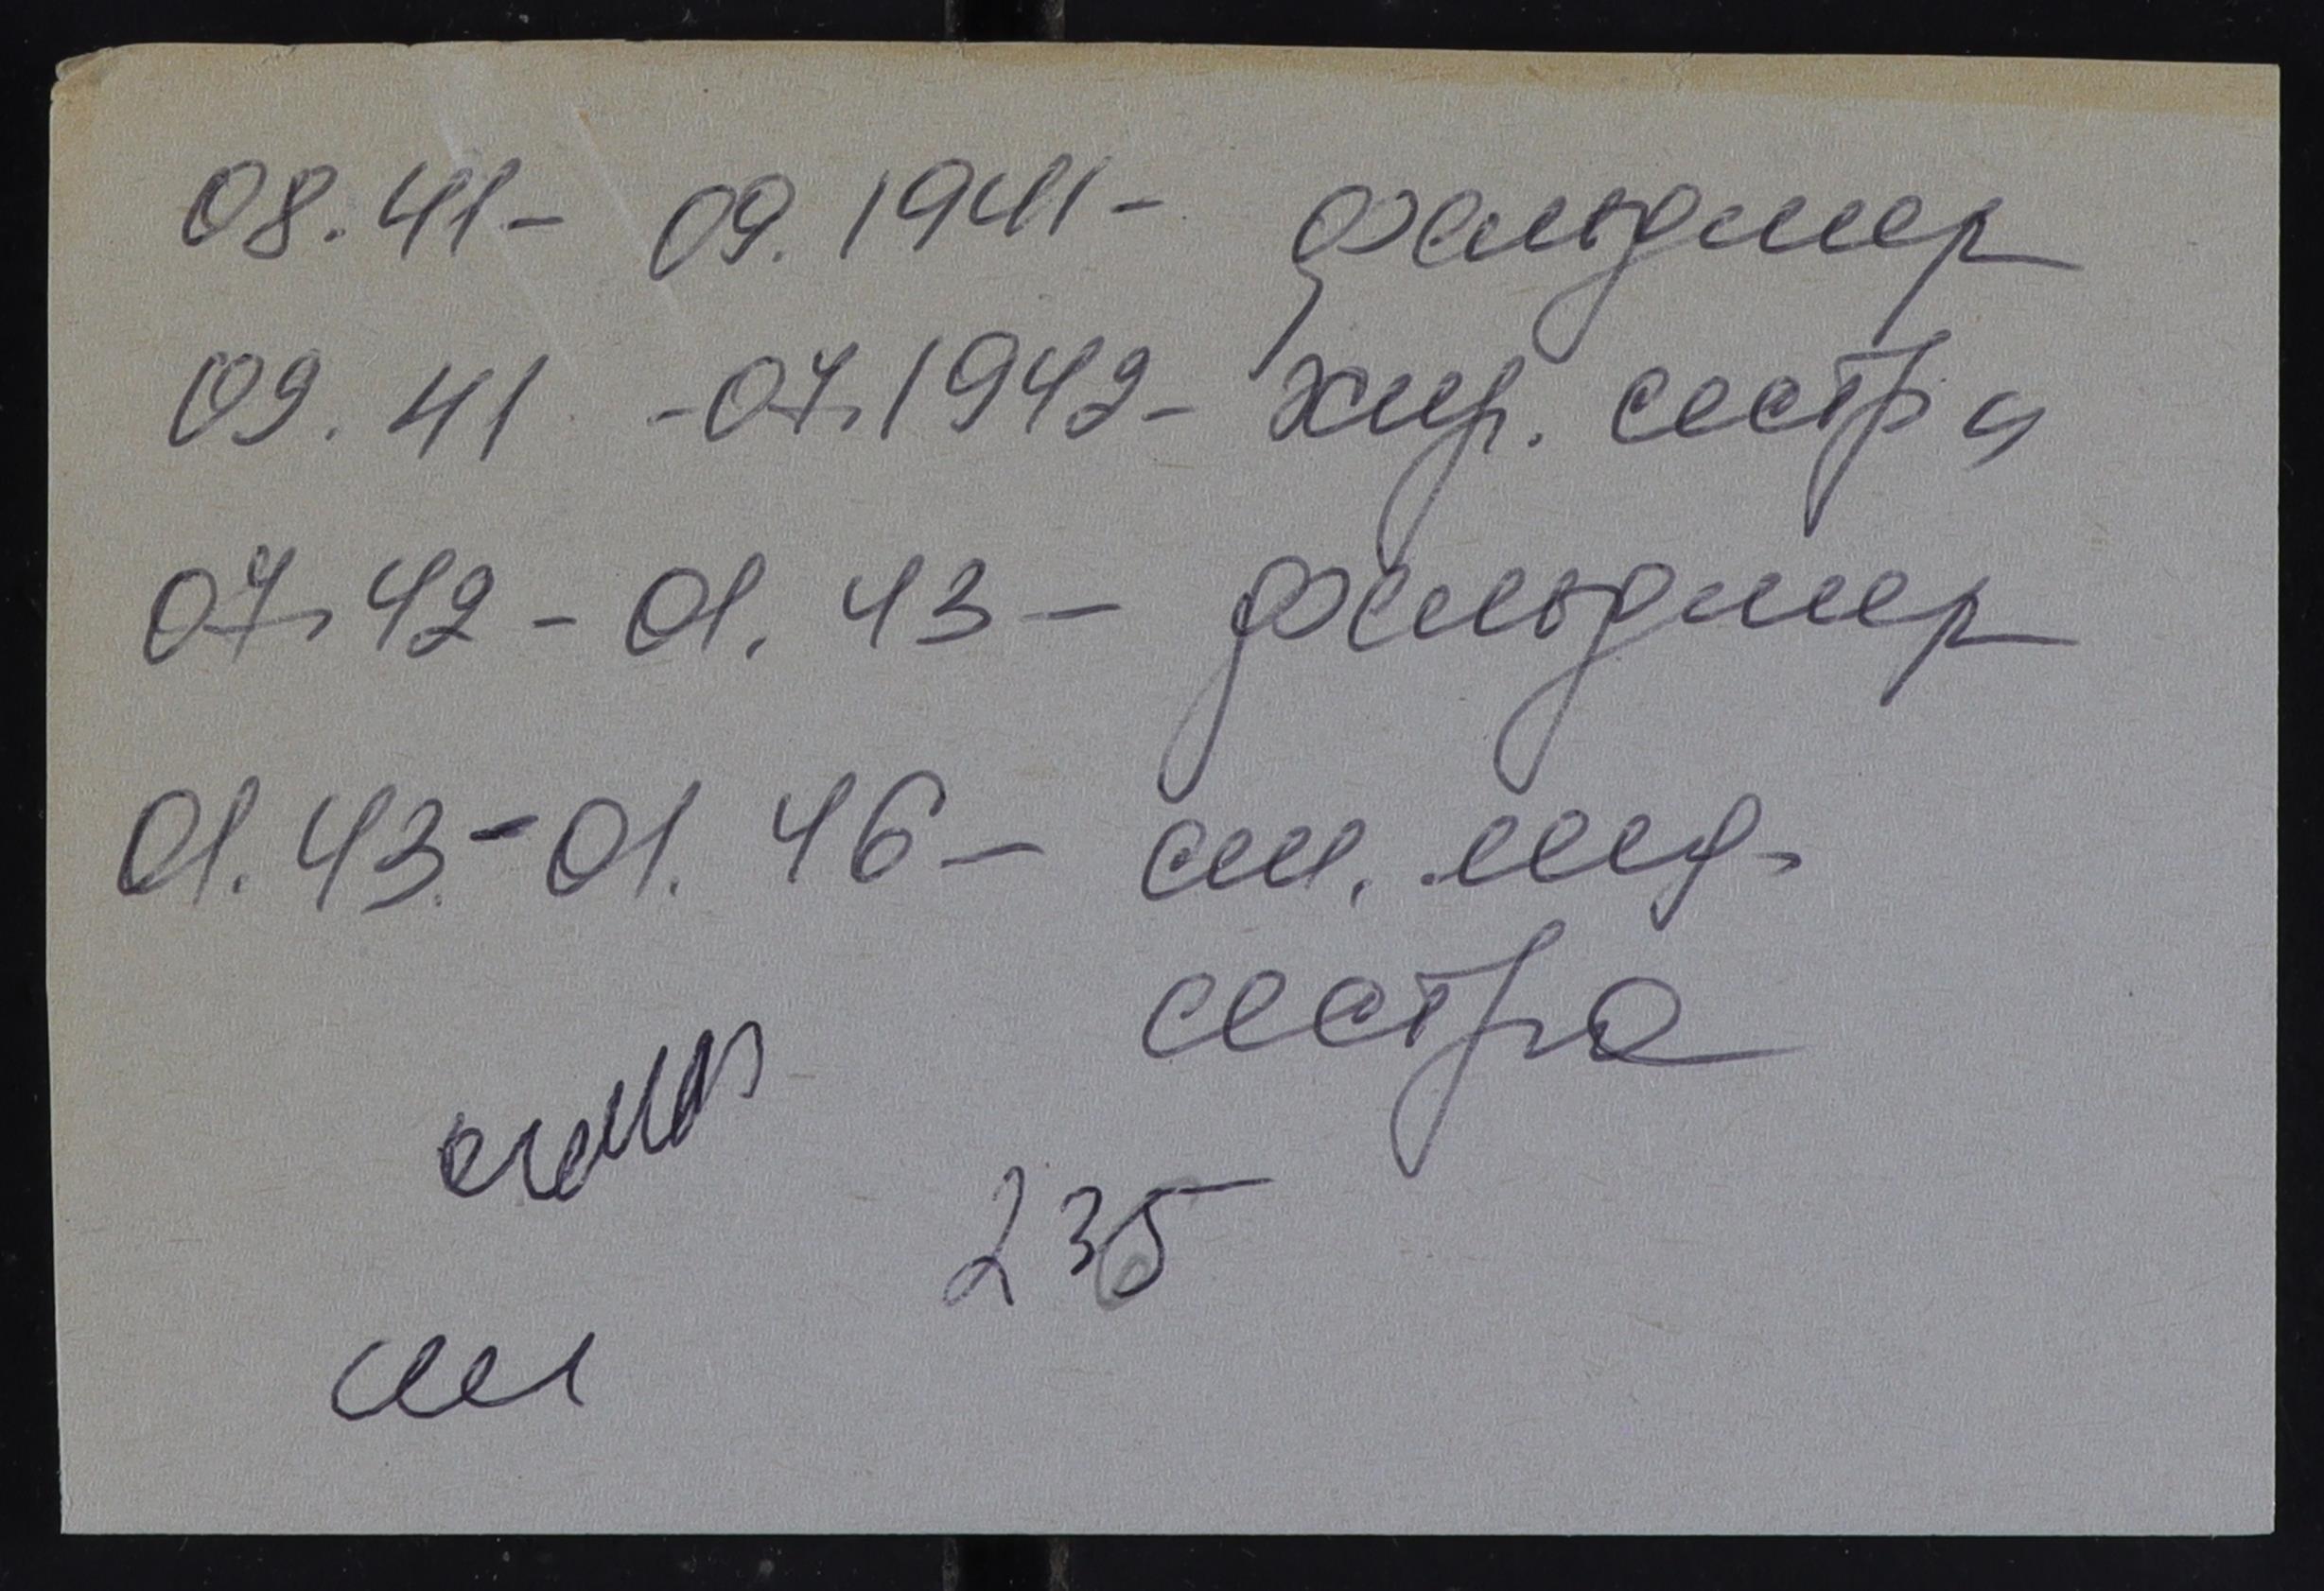 08.41- 09.1941- фельдшер
09.41 -07.1942- хир. сестра
07.42 - 01.43 - фельдшер
01.43.-01.46 - ст. мед.
сестра
235
ст